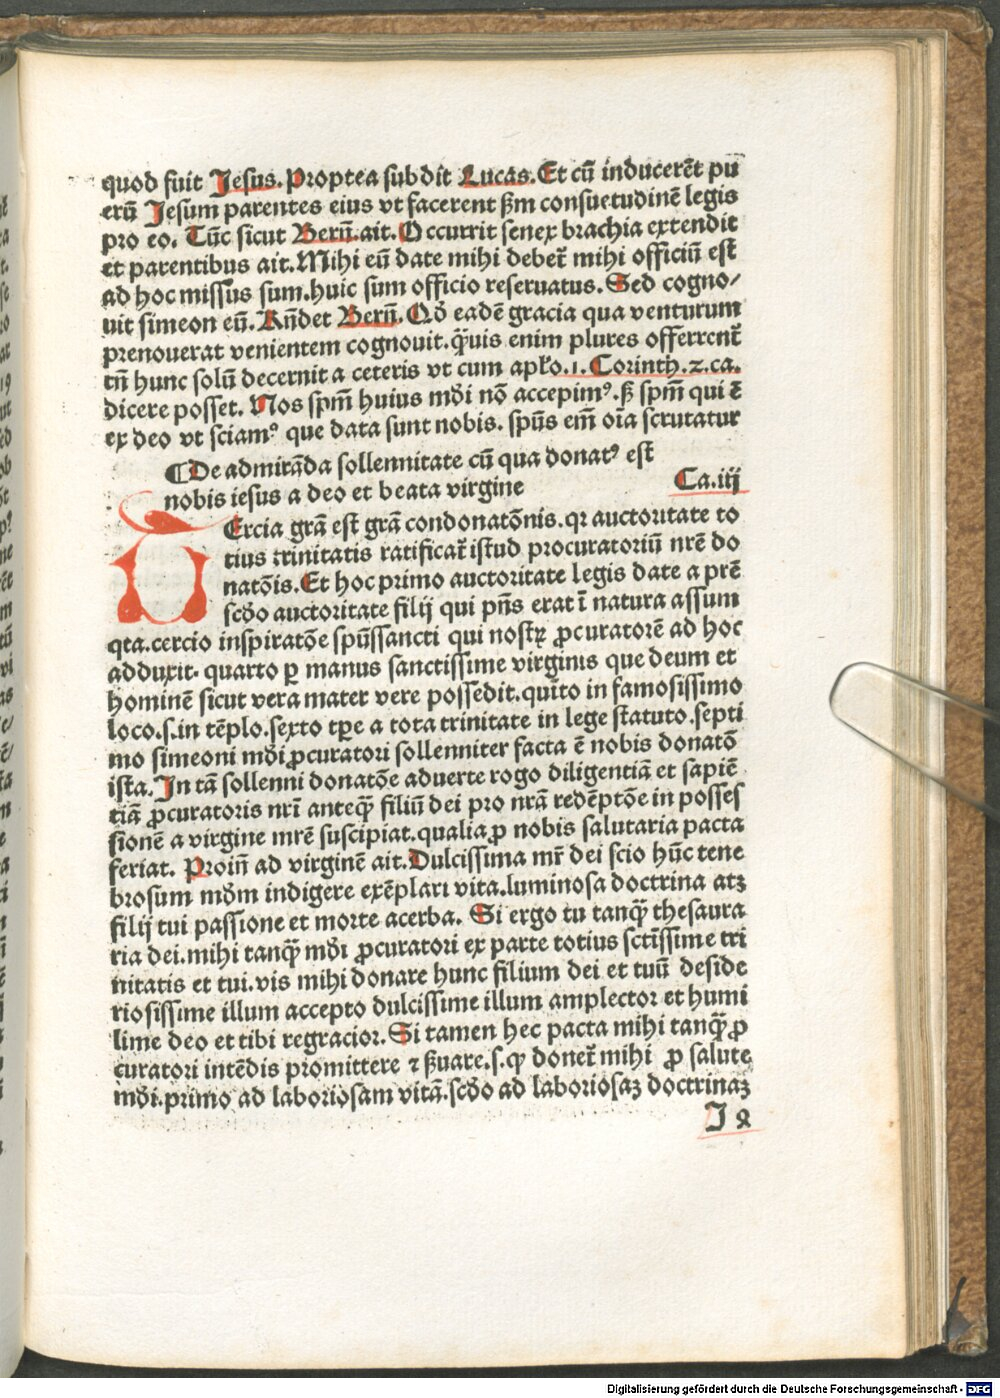 quod fuit Jesus. Proptea subdit Lucas. Et cū inducerēt pu
erū Jesum parentes eius vt facerent ßm consuetudinē legis
pro eo. Tūc sicut Berñ. ait. Occurrit senex brachia extendit
et parentibus ait. Mihi eū date mihi debet̄ mihi officiū est
ad hoc missus sum. huic sum officio reseruatus. Sed cogno/
uit simeon eū. Rñdet Berñ. Qđ eadē gracia qua venturum
prenouerat venientem cognouit. q̄uis enim plures offerrent̄
tñ hunc solū decernit a ceteris vt cum apl̄o. 1. Corinth. 2. ca.
dicere posset. Nos spm̄ huius mđi nō accepimꝰ. ß spm̄ qui ē
ex deo vt sciamꝰ que data sunt nobis. spūs em̄ oīa scrutatur
¶ De admirāda sollennitate cū qua donatꝰ est
nobis iesus a deo et beata virgine Ca. iij
TErcia grā est grā condonatōnis. qr auctoritate to
tius trinitatis ratificat̄ istud procuratoriū nrē do
natōis. Et hoc primo auctoritate legis date a prē
scđo auctoritate filij qui pn̄s erat ī natura assum
pta. tercio inspiratōe spūssancti qui nostꝝ ꝓcuratorē ad hoc
adduxit. quarto ꝑ manus sanctissime virginis que deum et
hominē sicut vera mater vere possedit. quīto in famosissimo
loco. s. in tēplo. sexto tꝑe a tota trinitate in lege statuto. septi
mo simeoni mđi ꝓcuratori sollenniter facta ē nobis donatō
ista. In tā sollenni donatōe aduerte rogo diligentiā et sapiē
tiā ꝓcuratoris nrī anteq̄ filiū dei pro nrā redēptōe in posses
sionē a virgine mrē suscipiat. qualia ꝓ nobis salutaria pacta
feriat. Proiñ ad virginē ait. Dulcissima mr̄ dei scio hūc tene
brosum mđm indigere exēplari vita. luminosa doctrina atꝫ
filij tui passione et morte acerba. Si ergo tu tanq̄ thesaura
ria dei. mihi tanq̄ mđi ꝓcuratori ex parte totius sctīssime tri
nitatis et tui. vis mihi donare hunc filium dei et tuū deside
riosissime illum accepto dulcissime illum amplector et humi
lime deo et tibi regracior. Si tamen hec pacta mihi tanq̄ ꝓ
curatori intēdis promittere ⁊ ßuare. s. ꝙ donet̄ mihi ꝓ salute
mđi. primo ad laboriosam vitā. scđo ad laboriosaꝫ doctrinaꝫ
J 2
Digitalisierung gefördert durch die Deutsche Forschungsgemeinschaft - DFG